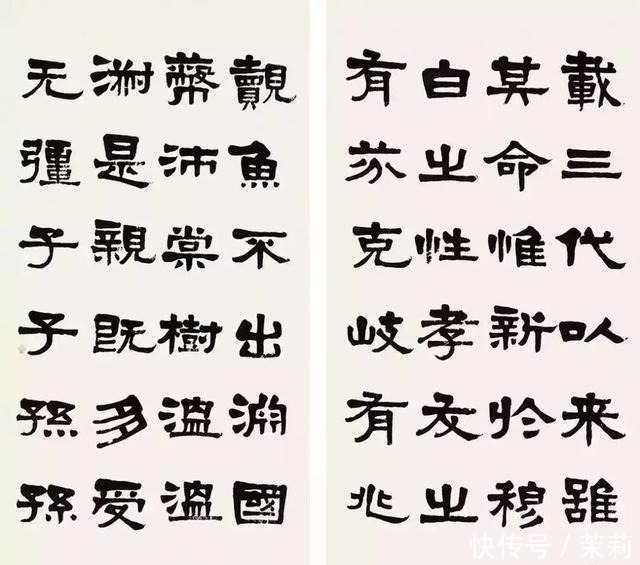 載三代以来雖
其命惟新於穆
白之性孝友之
有芬克岐有兆
覿魚不出淵國
蔽沛棠樹溫溫
淑是親既多受
无彊子子孫孫
快传号 / 茉莉